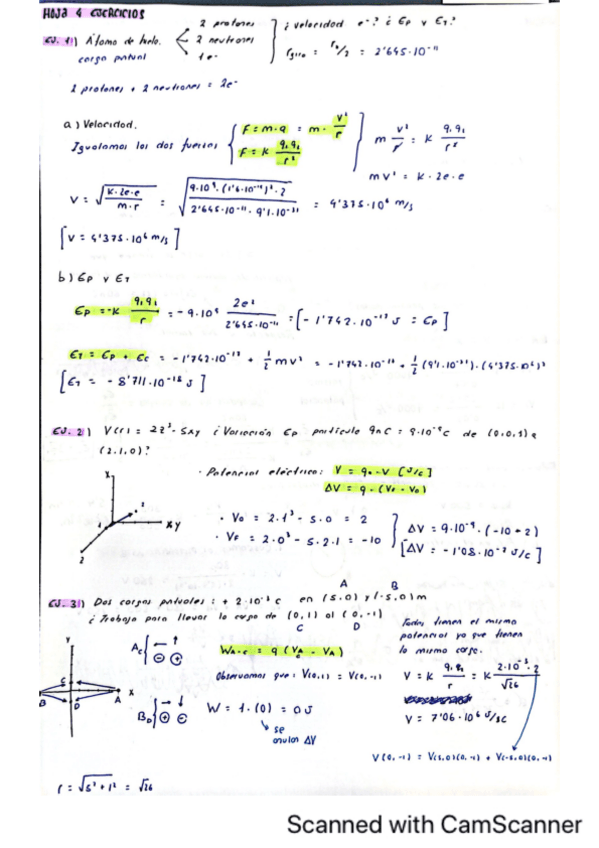 HOJA 4 EJERCICIOS
EJ. 1) Átomo de helio. 2 protones
2 neutrones
1 e-
carga puntual
¿velocidad e-? ¿Ep y ET?
r giro = r0/2 = 2'645·10⁻¹¹
2 protones + 2 neutrones = 2e-
a) Velocidad.
Igualamos las dos fuerzas { F = m·a = m· v²/r
F = k q·q₁/r² } m v²/r = k q·q₁/r²
mv² = k·2e·e
V = √(k·2e·e / m·r) = √(9·10⁹·(1'6·10⁻¹⁹)²·2 / 2'645·10⁻¹¹·9'1·10⁻³¹) = 4'375·10⁶ m/s
[V = 4'375·10⁶ m/s]
b) Ep y ET
Ep = -k q·q₁/r = -9·10⁹ 2e²/2'645·10⁻¹¹ = [-1'742·10⁻¹⁷ J = Ep]
ET = Ep + Ec = -1'742·10⁻¹⁷ + 1/2 mv² = -1'742·10⁻¹⁷ + 1/2 (9'1·10⁻³¹)·(4'375·10⁶)²
[ET = -8'711·10⁻¹⁸ J]
EJ. 2) V(r) = 2z³ - 5xy ¿Variación Ep partícula 9nC = 9·10⁻⁹C de (0,0,1) a
(2,1,0)?
· Potencial eléctrico:
ΔV = q·(Vf - V0)
· V0 = 2·1³ - 5·0 = 2
· VF = 2·0³ - 5·2·1 = -10
ΔV = 9·10⁻⁹·(-10-2)
[ΔV = -1'08·10⁻⁷ J/C]
x
x y
z
EJ. 3) Dos cargas puntuales: +2·10⁻³ C en (5,0) y (-5,0)m
A B
¿Trabajo para llevar la carga de (0,1) al (0,-1)
C D
Todas tienen el mismo
potencial ya que tienen
la misma carga.
Observamos que: V(0,1) = V(0,-1)
W = 1·(0) = 0J
se
anulan ΔV
V = k q·q₁/r = k 2·10⁻³·2/√26
V = 7'06·10⁶ J/C
V(0,-1) = V(5,0)(0,-1) + V(-5,0)(0,-1)
y
C
B D A x
r = √(5²+1²) = √26
Scanned with CamScanner